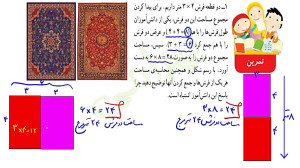 ۱ـ دو قطعه فرش ۳×۴ متر داریم. برای پیدا کردن
مجموع مساحت این دو فرش، یکی از دانش‌آموزان
طول فرش‌ها را با هم (۸=۴+۴) و عرض دو فرش
را با هم جمع کرد (۶=۳+۳). سپس، مساحت
مجموع دو فرش را به صورت ۴۸=۸×۶ به دست
آورد. با رسم شکل و همچنین محاسبه‌ی مساحت
هر یک از فرش‌ها و جمع کردن آنها توضیح دهید چرا
پاسخ این دانش‌آموز اشتباه است.
تمرین
۳×۴=۱۲
۶×۴=۲۴
مساحت دو فرش ۲۴ متر مربع
۳×۸=۲۴
مساحت دو فرش ۲۴ متر مربع
۸